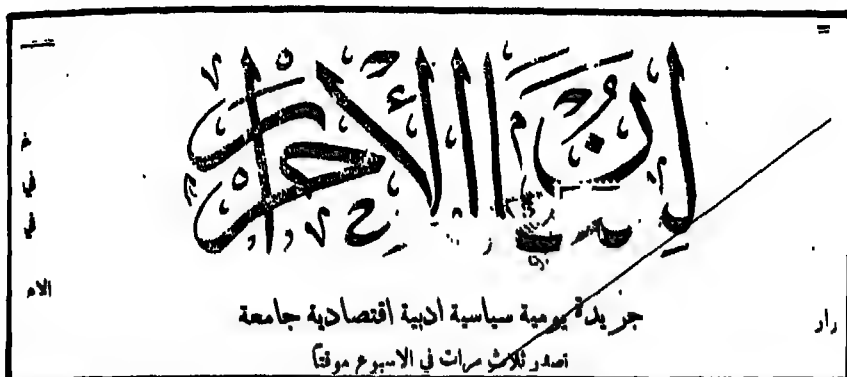 لِسَانُ الأحرار
جريدة يومية سياسية ادبية اقتصادية جامعة
تصدر ثلاث مرات في الاسبوع موقتاً
رار
الام